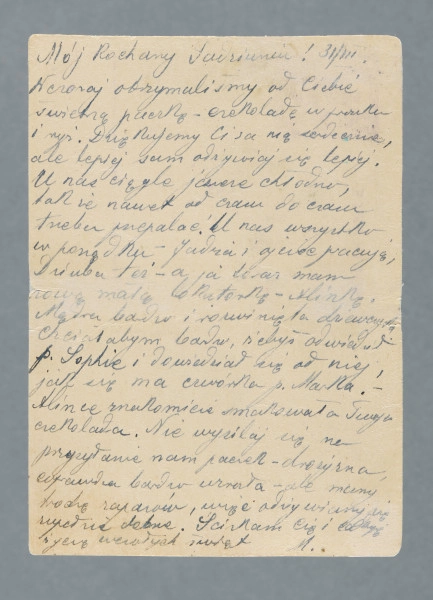 Mój Kochany ! 31/III.
Wczoraj otrzymaliśmy od Ciebie
świetną paczkę - czekoladę w proszku
i ryż. Dziękujemy Ci za nią serdecznie,
ale lepiej sam odżywiaj się lepiej.
U nas ciągle jeszcze chłodno,
tak że nawet od czasu do czasu
trzeba przepalać. U nas wszystko
w porządku - Jadzia i ojciec pracują,
Dziuba też - a ja teraz mam
nową małą lokatorkę - Alinkę.
Mądra bardzo i rozwinięta dziewczynka
Chciałabym bardzo, żebyś odwiedził
p. Sophie i dowiedział się od niej
jak się ma córka p. Marka. -
Alince znakomicie smakowała Twoja
czekolada. Nie wysilaj się na
przysyłanie nam paczek - drożyzna,
coprawda bardzo wzrosła - ale mamy
trochę zapasów, więc odżywiamy się
zupełnie dobrze. Ściskam Cię i
życzę wesołych świąt M..